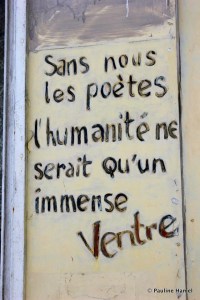 Sans nous
les poètes
l'humanité ne
serait Qu'un
immense
Ventre
© Pauline Hamel